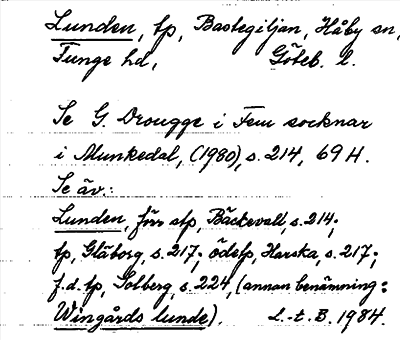 Lunden, tp, Bastegiljan, Håby sn,
Tunge hd, Göteb. l.
Se G. Drougge i Fem socknar
i Munkedal, (1980), s. 214, 69 H.
Se äv.:
Lunden, förr stp, Bäckevall, s. 214;
tp, Gläborg, s. 217; ödetp, Harska, s. 217;
f.d. tp, Solberg, s. 224, (annan benämning:
Wingårds lunde). L.-t. B. 1984.